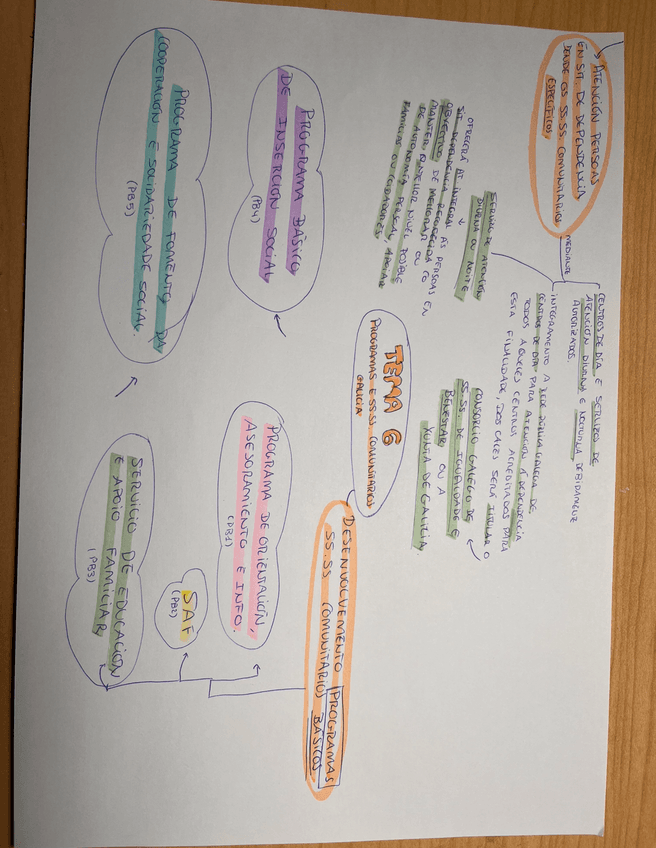 TEMA 6
PROGRAMAS E SS.SS. COMUNITARIOS
GALICIA
DESENVOLVEMENTO
SS.SS COMUNITARIOS
PROGRAMAS
BÁSICOS
PROGRAMA DE ORIENTACIÓN,
ASESORAMIENTO E INFO.
(PB1)
SAF
(PB2)
SERVICIO DE EDUCACIÓN
E APOIO FAMILIAR
(PB3)
PROGRAMA BÁSICO
DE INSERCIÓN SOCIAL
(PB4)
PROGRAMA DE FOMENTO DA
COOPERACIÓN E SOLIDARIEDADE SOCIAL
(PB5)
ATENCIÓN PERSOAS
EN SIT. DE DEPENDENCIA
DENDE OS SS.SS. COMUNITARIOS
ESPECÍFICOS
MEDIANTE
CENTROS DE DÍA E SERVIZOS DE
ATENCIÓN DIURNA E NOCTURNA DEBIDAMENTE
AUTORIZADOS.
INTEGRAMENTO A REDE PÚBLICA GALEGA DE
CENTROS DE DÍA PARA ATENCIÓN Á DEPENDENCIA
TODOS AQUELES CENTROS ACREDITADOS PARA
ESTA FINALIDADE, DOS CALES SERÁ TITULAR O
CONSORCIO GALEGO DE
SS.SS. DE IGUALDADE E
BENESTAR OU A
XUNTA DE GALICIA
SERVIZO DE ATENCIÓN
DIURNA OU NOITE
OFRECERÁ AT. INTEGRAL ÁS PERSOAS EN
SIT. DEPENDENCIA RECOÑECIDA CO
OBXECTIVO DE MELLORAR OU
MANTER O MELLOR NIVEL POSIBLE
DE AUTONOMÍA PERSOAL, APOIAR
FAMILIAS OU COIDADORES,